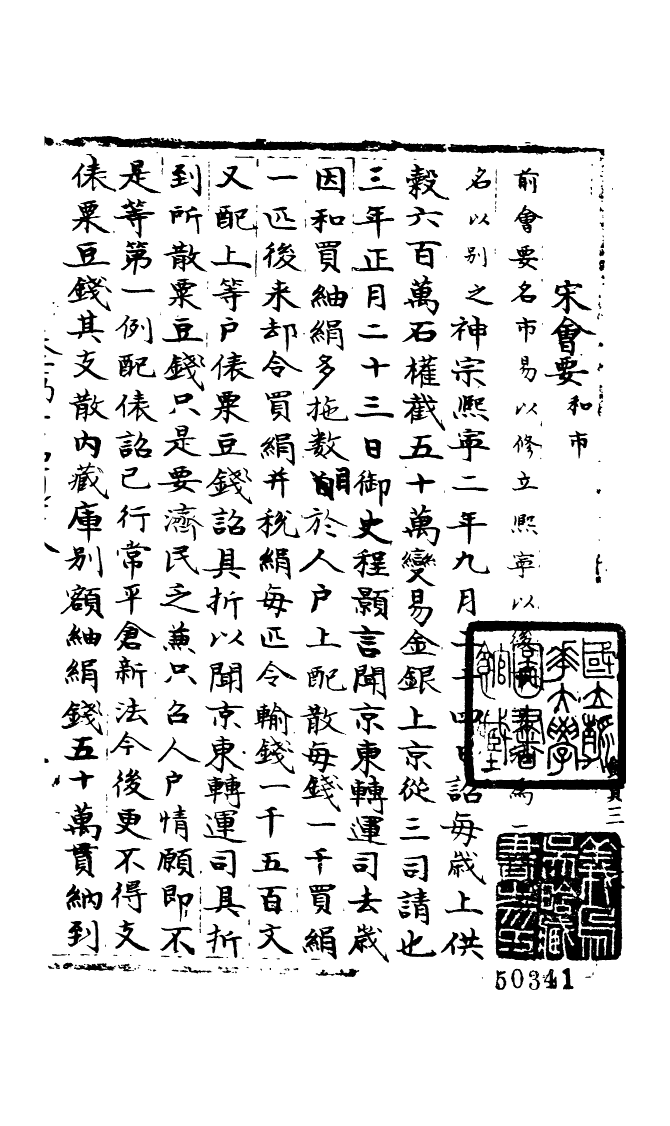 宋會要 和市
前會要名市易以修立熙寧以後
名以別之神宗熙寜二年九月二十四日詔每歲上供
糓六百萬石權截五十萬變易金銀上京從三司請也
三年正月二十三日御史程顥言聞京東轉運司去歲
因和買紬絹多拖數目於人戶上配散每錢一千買絹
一匹後来却令買絹并稅絹每匹令輸錢一千五百文
又配上等戶俵粟豆錢詔具折以聞京東轉運司具折
到所散粟豆錢只是要濟民乏兼只召人戶情願即不
是等第一例配俵詔已行常平倉新法今後更不得支
俵粟豆錢其支散內藏庫別額紬絹錢五十萬貫納到
國立清華大學圖書館藏
50341